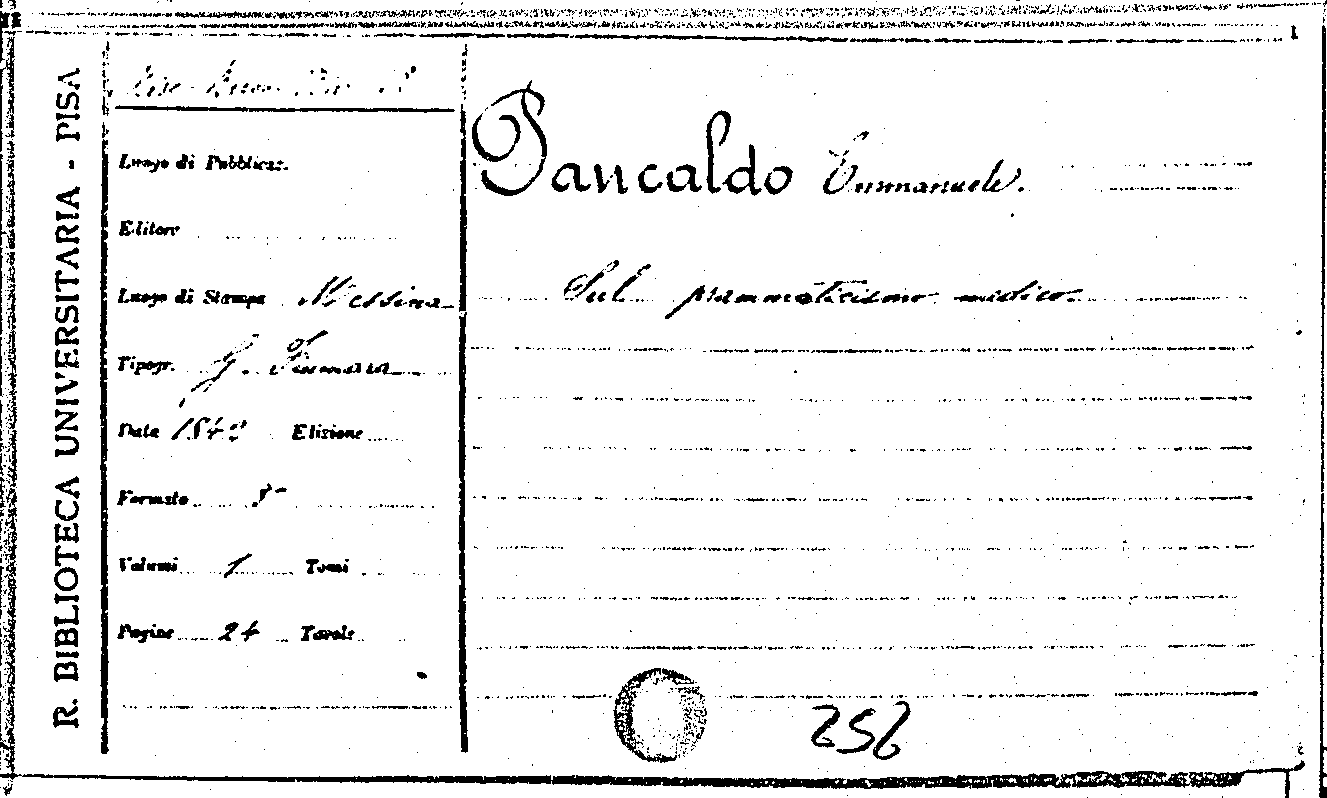 R. BIBLIOTECA UNIVERSITARIA - PISA
Luogo di Pubblicaz.
Editore
Luogo di Stampa Messina
Tipogr. G. Fiumara
Data 184 Edizione
Formato 8°
Volumi 1 Tomi
Pagine 24 Tavole
Pancaldo Emmanuele.
Sul prammaticismo medico.
252
1